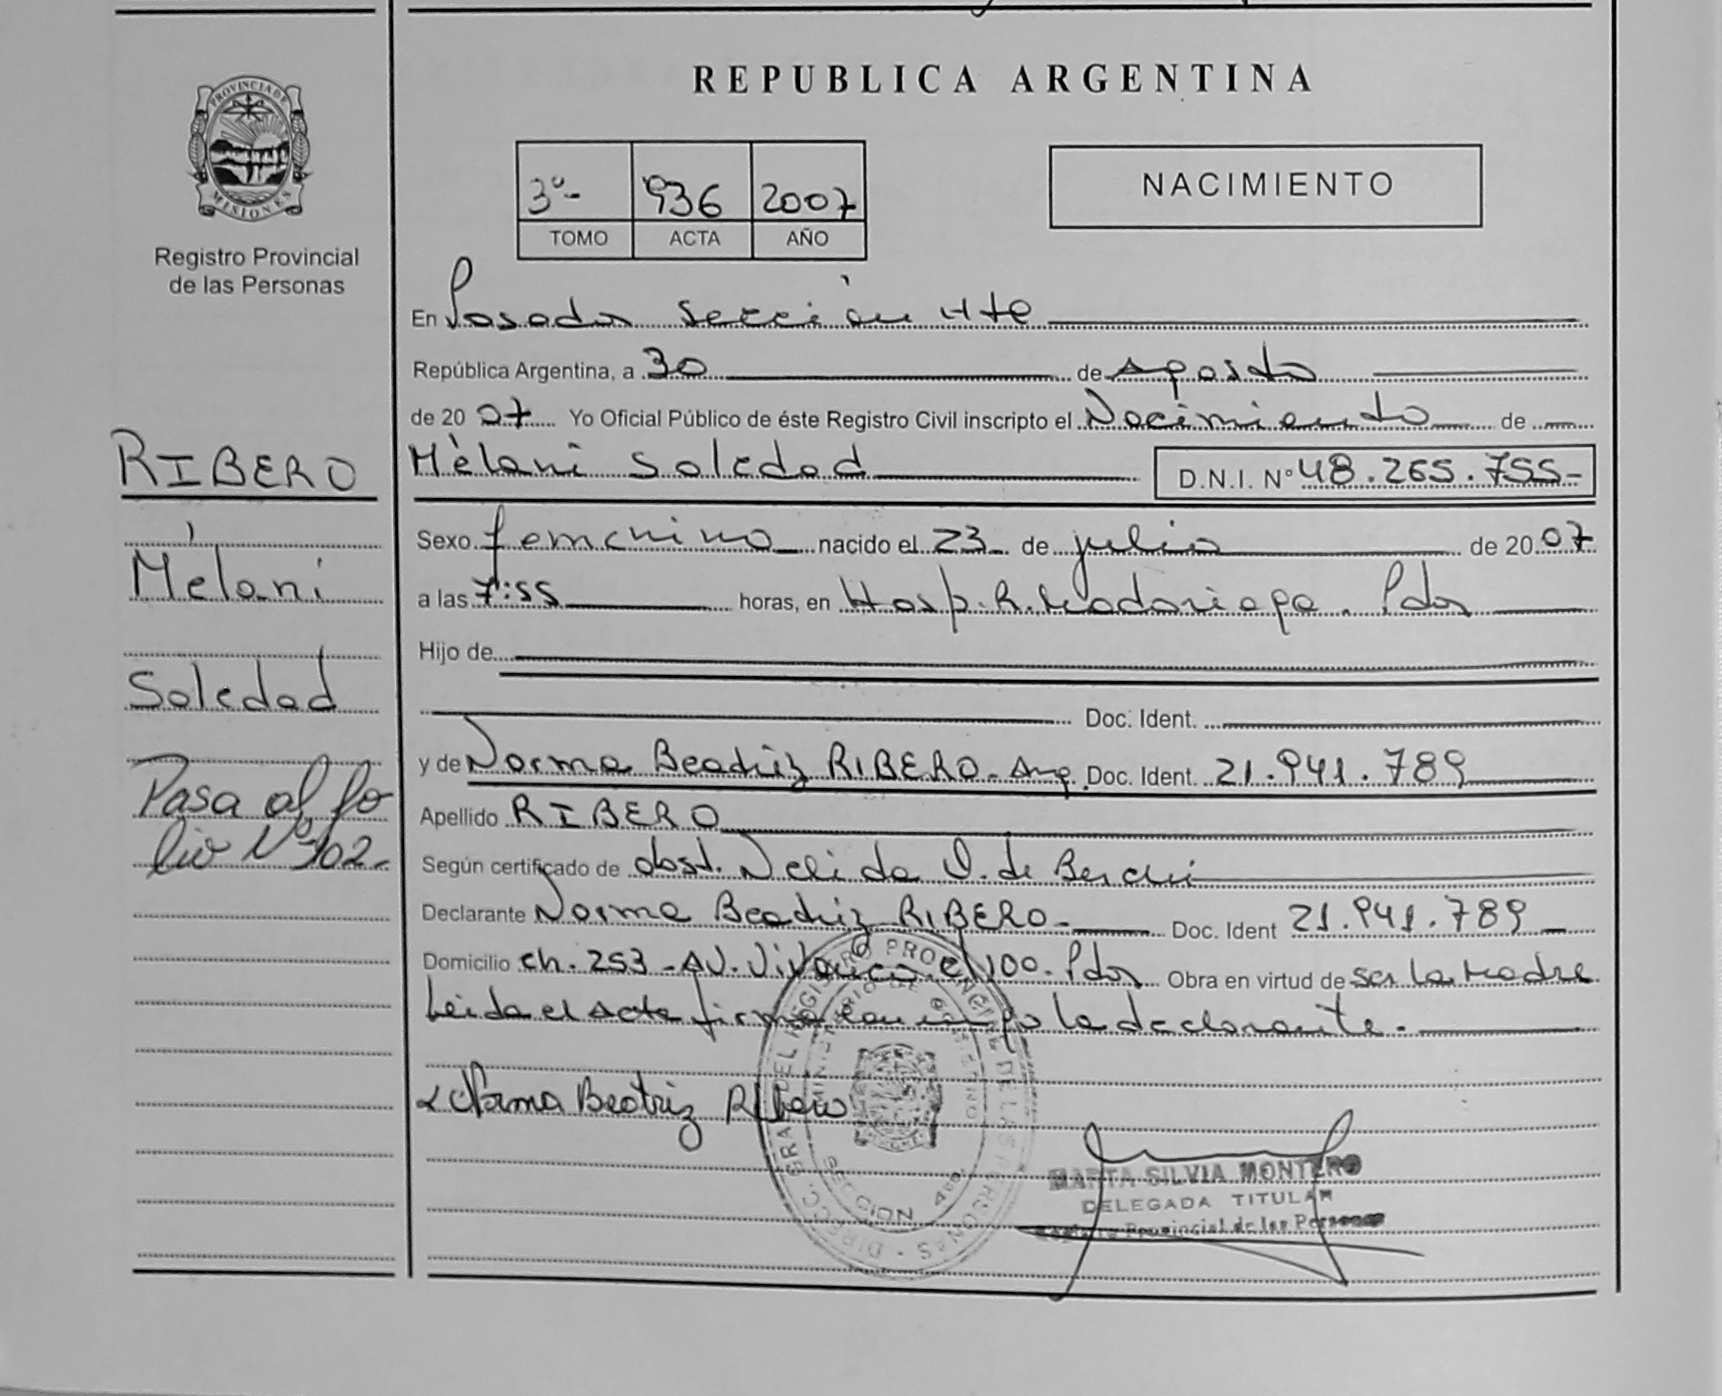 REPUBLICA ARGENTINA
PROVINCIA DE
MISIONES
Registro Provincial
de las Personas
3º- 936 2007
TOMO ACTA AÑO
NACIMIENTO
En Posadas sección 4ta
República Argentina, a 30 de Agosto
de 20 07 Yo Oficial Público de éste Registro Civil inscripto el Nacimiento de
Mèlani Soledad D.N.I. Nº 48.265.755-
Sexo femenino nacido el 23 de julio de 20 07
a las 7:55 horas, en Hosp. R. Madariaga. Pdas
Hijo de
Doc. Ident.
y de Norma Beatriz RIBERO- Arg. Doc. Ident. 21.941.789
Apellido RIBERO
Según certificado de obst. Nelida
Declarante Norma Beatriz RIBERO- Doc. Ident 21.941.789
Domicilio ch. 253 - AV. 100. Pdas Obra en virtud de ser la madre
Leida el acta firma conmigo la declarante.
Norma Beatriz Ribero
RIBERO
Mélani
Soledad
Pasa al fo
lio Nº 102-
DIRECC. GRAL. DEL REGISTRO PROVINCIAL DE LAS PERSONAS
MINISTERIO DE GOBIERNO
SECCION 4ta
MARTA SILVIA MONTERO
DELEGADA TITULAR
Provincial de las Personas